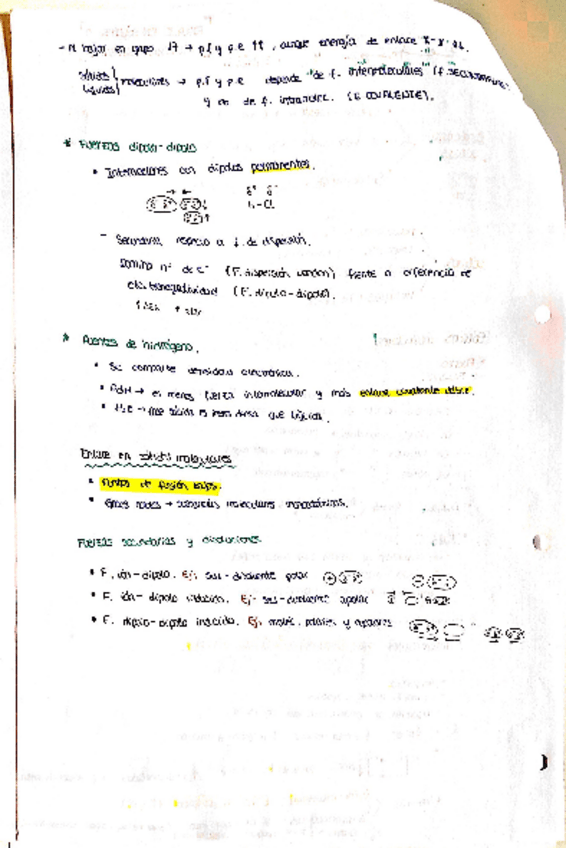 - Al bajar en grupo 17 → p.f y p.e ↑↑, aunque energía de enlace X-X ↓↓.
Sólidos
Líquidos } moleculares → p.f y p.e depende de f. intermoleculares (f. SECUNDARIAS)
y no de f. intramolec. (E COVALENTE).
* Fuerzas dipolo-dipolo
• Interacciones con dipolos permanentes.
δ⁺ δ⁻
H-Cl
- Secundaria respecto a f. de dispersión.
Domina nº de e⁻ (F. dispersión London) frente a diferencia de
electronegatividad (F. dipolo-dipolo).
* Puentes de hidrógeno.
• Se comparte densidad electrónica.
• PdH → es menos fuerza intermolecular y más enlace covalente débil.
• H₂O → fase sólida es menos densa que líquida.
Enlace en sólidos moleculares
• Puntos de fusión bajos.
• Gases nobles → moleculares monoatómicos.
Fuerzas secundarias y disoluciones
• F. ión-dipolo. Ej: sal-disolvente polar
• F. ión-dipolo inducido. Ej: sal-disolvente apolar
• F. dipolo-dipolo inducido. Ej: molec. polares y apolares